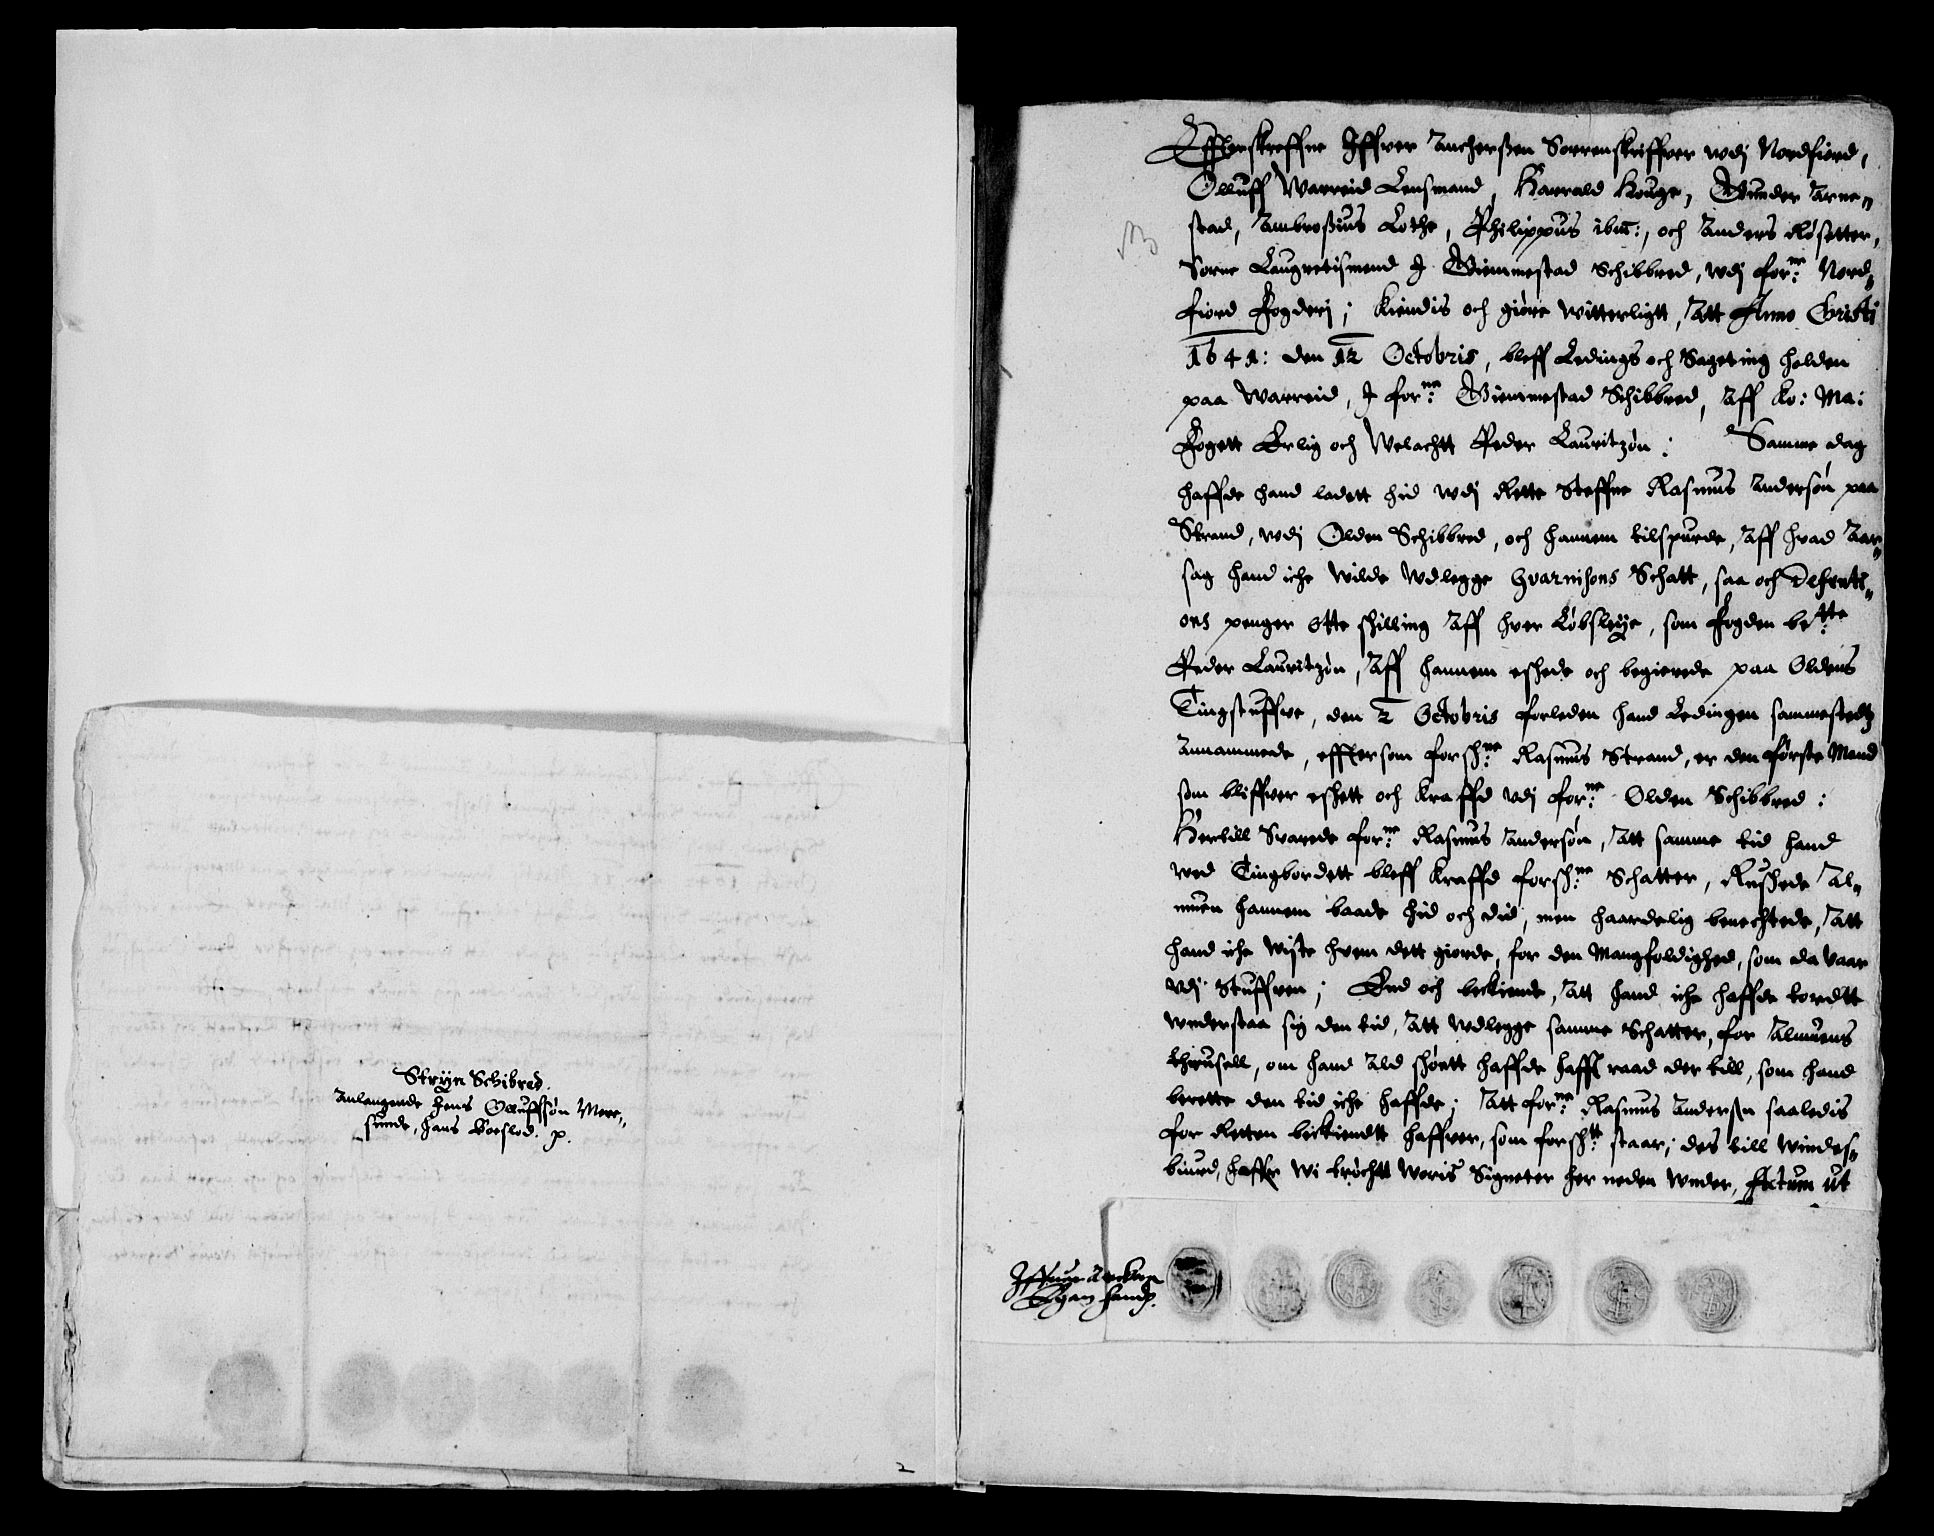 Stryn Schibred.
Anlangende Jens Olluffsøn Mere,,
sunde, Hans Boeslod. p.
2
Effterskreffne Iffver Anchersen Sorrenskriffver wdj Nordfiord,
Olluff Warreid Lensmand, Harrald Houge, Gunder Arne,,
stad, Ambrosius Lothe, Philippus ibm:, och Anders Røsetter,
Sorne Laugrettismend I Giemmestad Schibbred, wdj forne: Nord,,
fiord Fogderj; Kiendis och giøre witterligtt, Att Anno Cristi
1641: den 12 Octobris, bleff Ledings och Sageting holden
paa Warreid, I forne: Giemmestad Schibbred, Aff Ko: Ma:
Fogett Erlig och Welachtt Peder Lauritzøn: Samme dag
haffde hand ladett hid wdj Rette Steffne Rasmus Andersøn paa
Strand, wdj Olden Schibbred, och hannem tilspurde, Aff hvad Aar,,
sag hand iche wilde wdlegge Gvarnisons Schatt, saa och Defenti,,
ons penger otte shilling Aff hver Løbsleye, som Fogden bette:
Peder Lauritzøn, Aff hannem eshede och begierede paa Oldens
Tingstuffve, den 2 Octobris forleden hand Ledingen sammestedtz
Annammede, efftersom forshne: Rasmus Strand, er den første Mand
som bliffver eshett och kraffd vdj forne: Olden Schibbred:
Hertill Svarede forne: Rasmus Andersøn, Att samme tid hand
wed Tingbordett bleff kraffd forshne: Schatter, Rushede Al,,
muen hannem baade hid och did, men haardelig benechtede, Att
hand iche wiste hvem dett giorde, for den Mangfoldighed, som da vaar
vdj Stuffven; End och bekiende, Att hand iche haffde tordtt
wnderstaa sig den tid, Att wdlegge samme Schatter, for Almuens
thrusell, om hand Ald shøntt haffde hafft raad der till, som hand
berette den tid iche haffde; Att forne: Rasmus Andersn saaledis
for Retten bekiendtt haffver, som forshtt: staar; des till windes,,
biurd, haffr wi trøchtt woris Signeter her neden wnder, Actum ut
Iffuer Anckers
Egen handt.